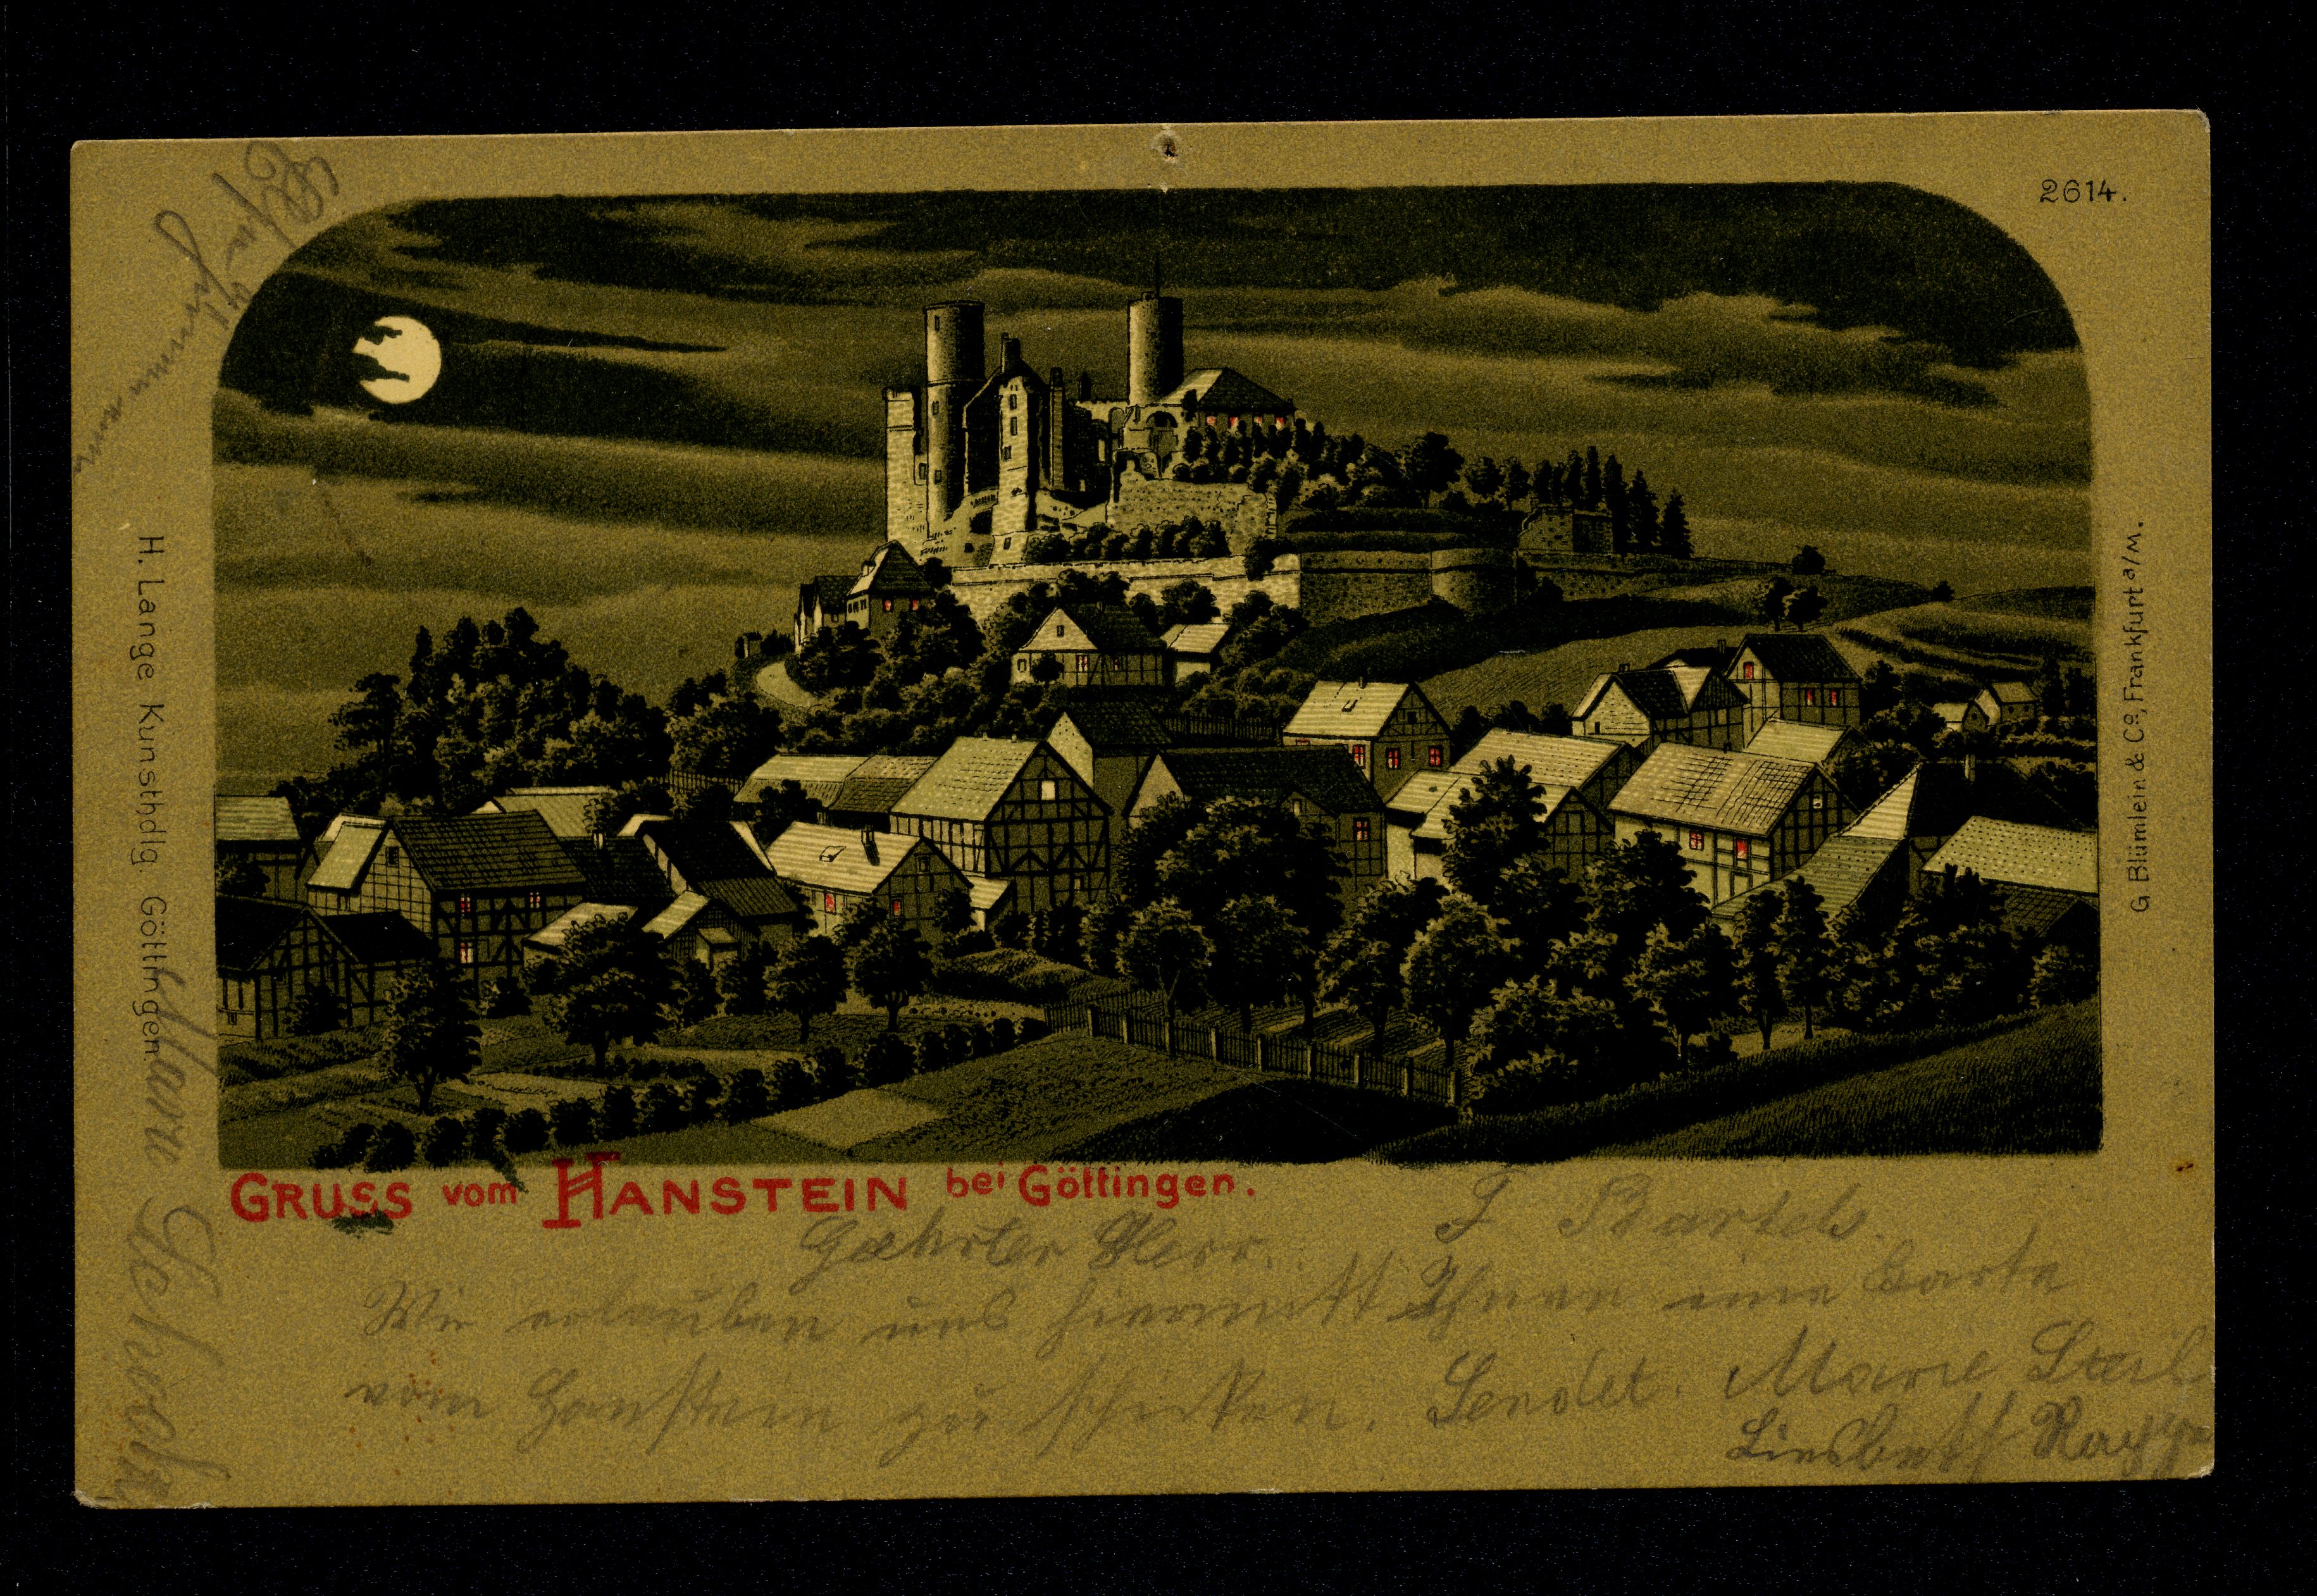 2614.
H. Lange Kunsthdlg. Göttingen.
G. Blümlein & Co, Frankfurt a/M.
GRUSS vom HANSTEIN bei Göttingen.
Geehrter Herr. F Bartels.
Wir erlauben uns hiermitt Ihnen eine Carte
vom Hanstein zu schicken. Sendet. Marie
Liesbeth